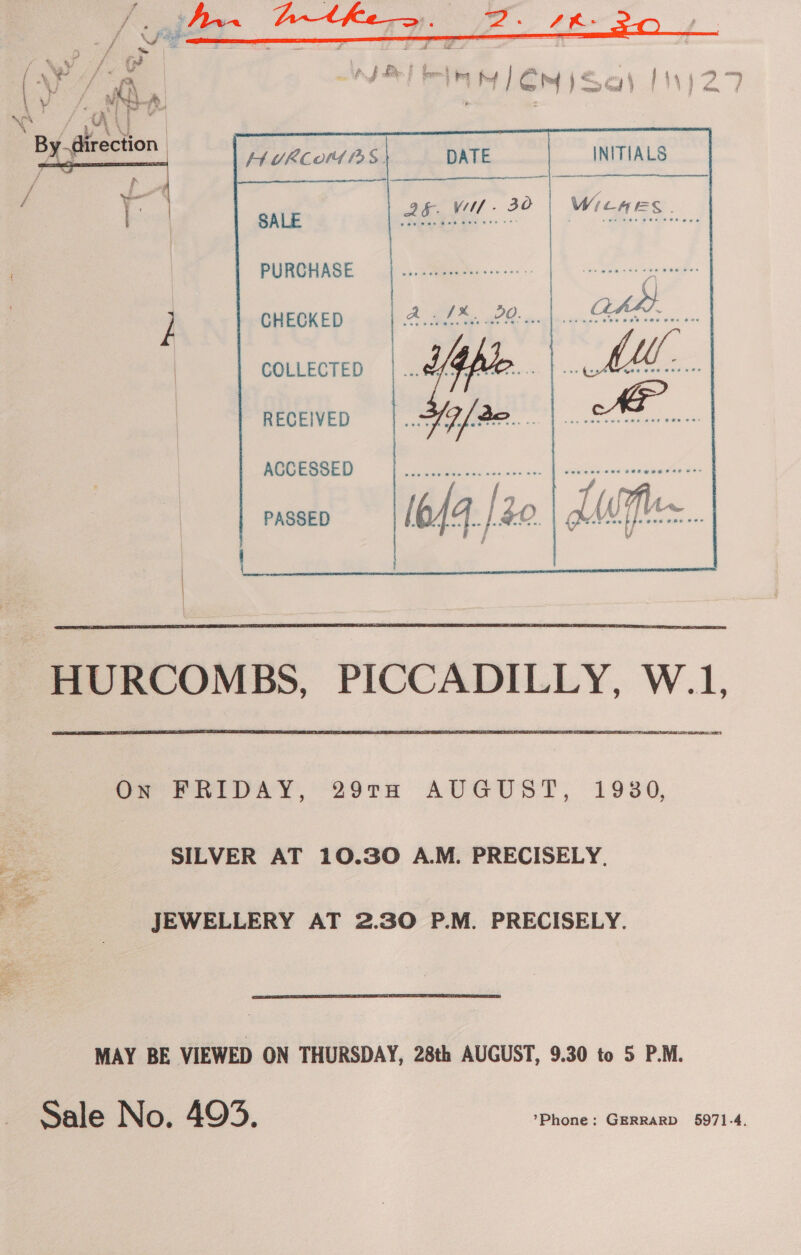 2. IX. 30
WA/HMM/CM/Sal/11/27
By direction
HURCOMBS DATE INITIALS
SALE 28. VIII. 30 WILKES.
PURCHASE
CHECKED 2. IX. 30.
COLLECTED
RECEIVED 3/9/30
ACCESSED
PASSED 16/9/30
HURCOMBS, PICCADILLY, W.1,
On FRIDAY, 29TH AUGUST, 1930,
SILVER AT 10.30 A.M. PRECISELY.
JEWELLERY AT 2.30 P.M. PRECISELY.
MAY BE VIEWED ON THURSDAY, 28th AUGUST, 9.30 to 5 P.M.
Sale No. 493. 'Phone: GERRARD 5971-4.